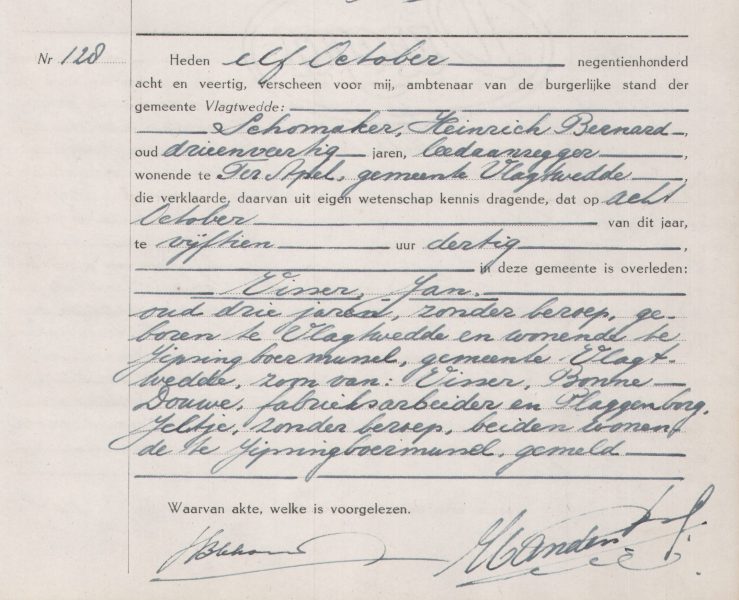 Nr 128 Heden elf October negentienhonderd
acht en veertig, verscheen voor mij, ambtenaar van de burgerlijke stand der
gemeente Vlagtwedde:
Schomaker, Heinrich Bernard,
oud drieenveertig jaren, leedaanzegger,
wonende te Ter Apel, gemeente Vlagtwedde
die verklaarde, daarvan uit eigen wetenschap kennis dragende, dat op acht
October van dit jaar,
te vijftien uur dertig,
in deze gemeente is overleden:
Visser, Jan.
oud drie jaren, zonder beroep, ge-
boren te Vlagtwedde en wonende te
Jipsingboermussel, gemeente Vlagt-
wedde, zoon van: Visser, Bonne
Douwe, fabrieksarbeider en Plaggenborg,
Jeltje, zonder beroep, beiden wonen-
de te Jipsingboermussel, gemeld
Waarvan akte, welke is voorgelezen.